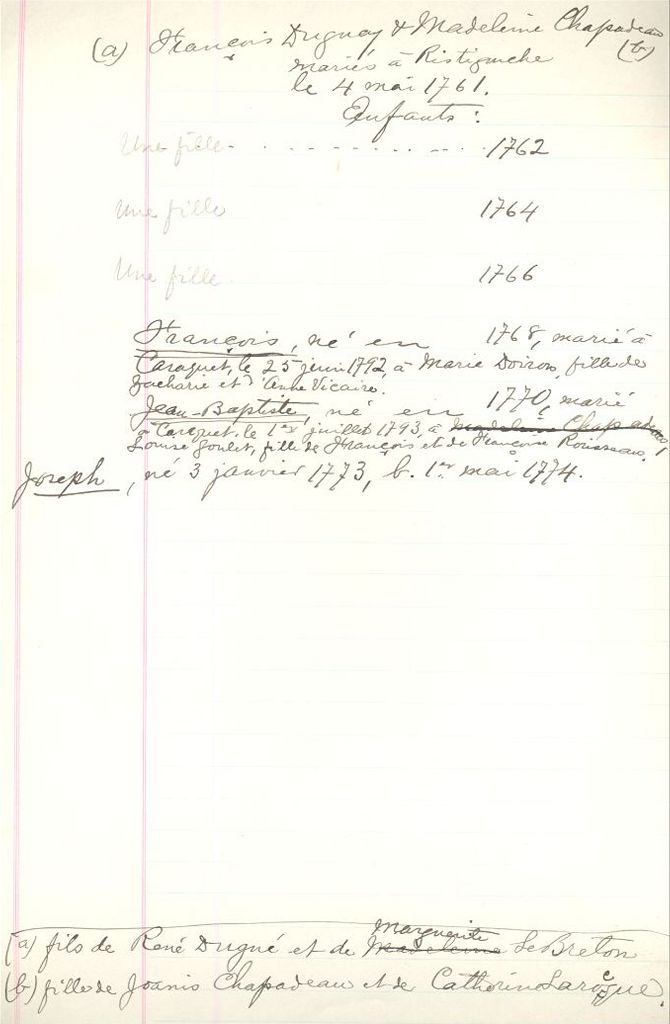 (a) François Duguay & Madeleine Chapadeau (b)
mariés à Ristigouche
le 4 mai 1761.
Enfants :
Une fille - - - - - - - - - - 1762
Une fille 1764
Une fille 1766
François, né en 1768, marié à
Caraquet, le 25 juin 1792, à Marie Doiron, fille de
Zacharie et d'Anne Vicaire.
Jean-Baptiste, né en 1770, marié
à Caraquet, le 1er juillet 1793, à Madeleine Chapadeau,
Louise Goulet, fille de François et de Françoise Rousseau.
Joseph, né 3 janvier 1773, b. 1er mai 1774.
Marguerite
(a) fils de René Dugué et de Madeleine LeBreton
(b) fille de Joanis Chapadeau et de Catherine Larocque.